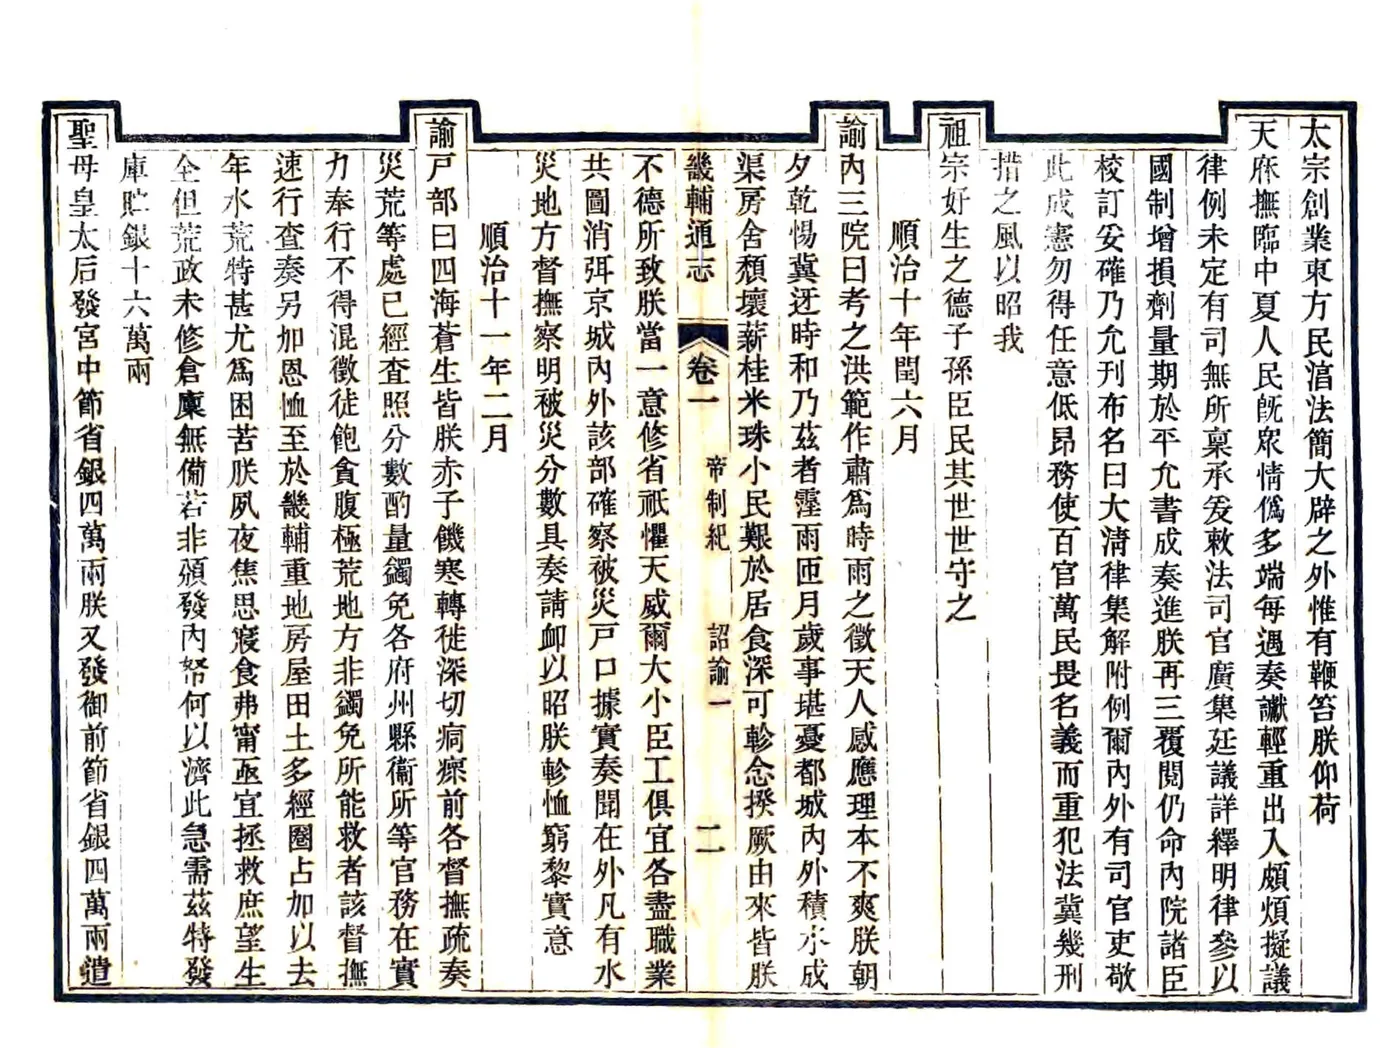 太宗創業東方民湻法簡大辟之外惟有鞭笞朕仰荷
天庥撫臨中夏人民旣衆情僞多端每遇奏讞輕重出入頗煩擬議
律例未定有司無所稟承爰敕法司官廣集廷議詳釋明律參以
國制增損劑量期於平允書成奏進朕再三覆閱仍命內院諸臣
校訂妥確乃允刊布名曰大淸律集解附例爾內外有司官吏敬
此成憲勿得任意低昂務使百官萬民畏名義而重犯法冀幾刑
措之風以昭我
祖宗好生之德子孫臣民其世世守之
順治十年閏六月
諭內三院曰考之洪範作肅爲時雨之徵天人感應理本不爽朕朝
夕乾惕冀迓時和乃茲者霪雨匝月歲事堪憂都城內外積水成
渠房舍頹壞薪桂米珠小民艱於居食深可軫念揆厥由來皆朕
畿輔通志 卷一 帝制紀 詔諭一 二
不德所致朕當一意修省祇懼天威爾大小臣工俱宜各盡職業
共圖消弭京城內外該部確察被災戶口據實奏聞在外凡有水
災地方督撫察明被災分數具奏請卹以昭朕軫恤窮黎實意
順治十一年二月
諭戶部曰四海蒼生皆朕赤子饑寒轉徙深切痌瘝前各督撫疏奏
災荒等處已經查照分數酌量蠲免各府州縣衞所等官務在實
力奉行不得混徵徒飽貪腹極荒地方非蠲免所能救者該督撫
速行查奏另加恩恤至於畿輔重地房屋田土多經圈占加以去
年水荒特甚尤爲困苦朕夙夜焦思寢食弗甯亟宜拯救庶望生
全但荒政未修倉廩無備若非頒發內帑何以濟此急需茲特發
庫貯銀十六萬兩
聖母皇太后發宮中節省銀四萬兩朕又發御前節省銀四萬兩遣